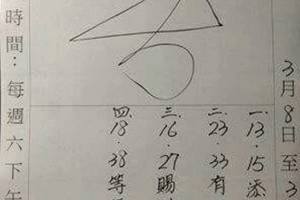 3月8日至3
一.13.15添
二.23.33有
三.16.27賜
四.18.38等
時間：每週六下午